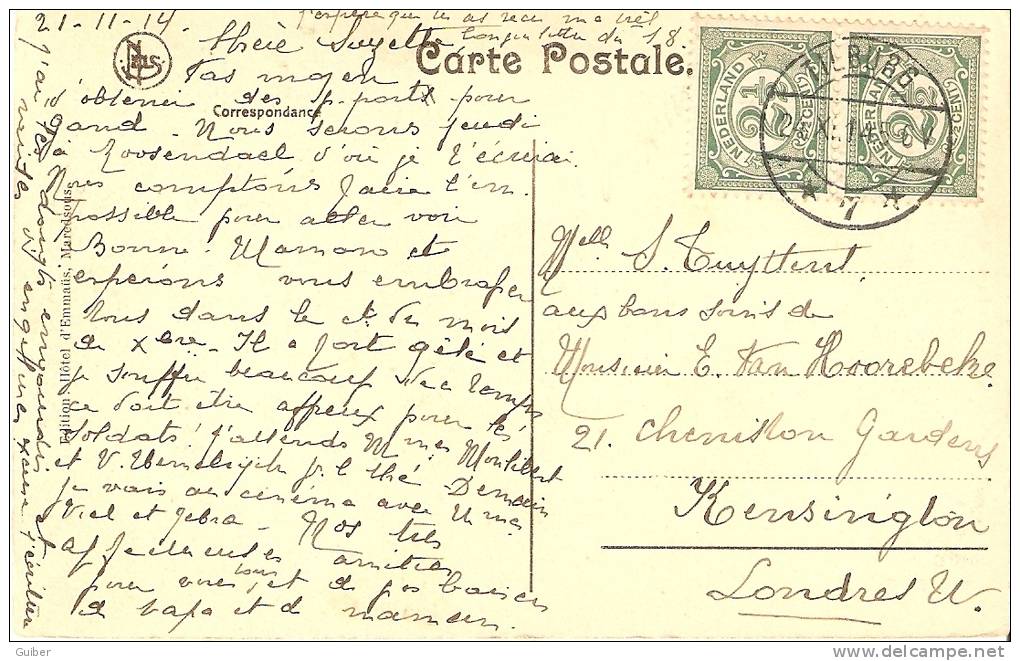 21-11-14
J'espère que tu as reçu ma
longue lettre du 18.
Chère Suzette
Carte Postale.
Correspondance
Pas moyen
d'obtenir des p. ports pour
gand. Nous serons jeudi
à Roosendael d'où je t'écrirai.
Nous comptons faire l'im
possible pour aller voir
Bonne-Maman et
espérons vous embrasser
tous dans le ct du mois
de Xbre. Il a fort gelé et
je souffre beaucoup de ce temps
ce doit être affreux pour les
soldats! J'attends Mmes
et V. p. l. thé. Demain
je vais au cinéma avec Mmes
Viel et Nos très
affectueuses amitiés
pour vous tous et de gros baisers
de papa et de maman.
Edition: Hôtel d'Emmaüs, Maredsous.
NEDERLAND 2½ CENT
NEDERLAND 2½ CENT
TILBURG
7
Melle S. Tuyttent
aux bons soins de
Monsieur E. Van Hoorebeke
21. Cheniston Gardens
Kensington
Londres W.
© delcampe.net
Guiber